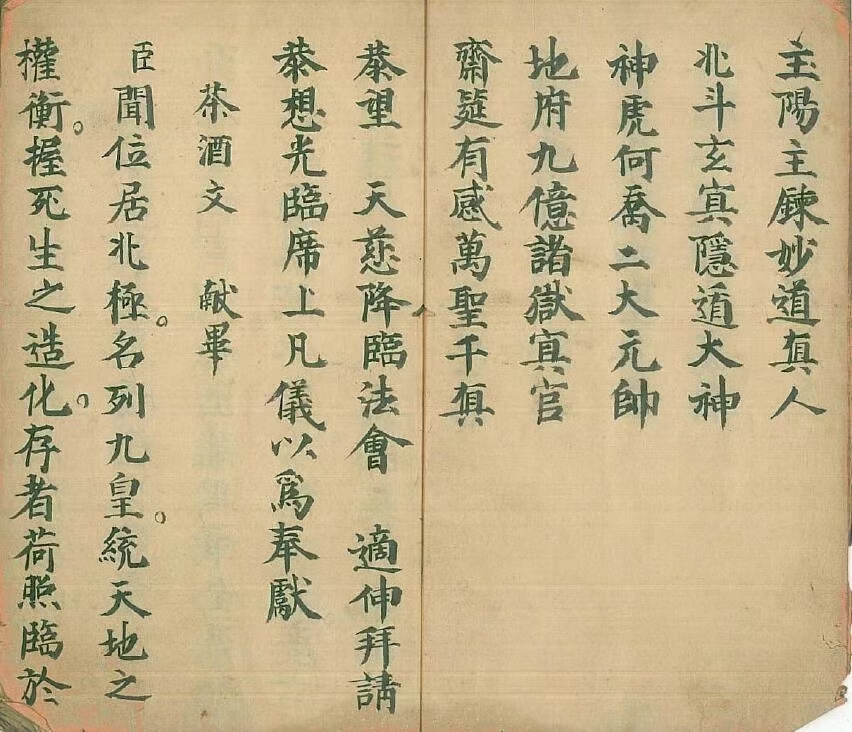 主陽主鍊妙道真人
北斗玄㝠隱遁大神
神虎何喬二大元帥
地府九億諸獄㝠官
齋筵有感萬聖千真
恭望　天慈降臨法會　適伸拜請
恭想光臨席上凡儀以爲奉獻
茶酒文　献畢
臣聞位居北極。名列九皇。統天地之
權衡。握死生之造化。存者荷照臨於